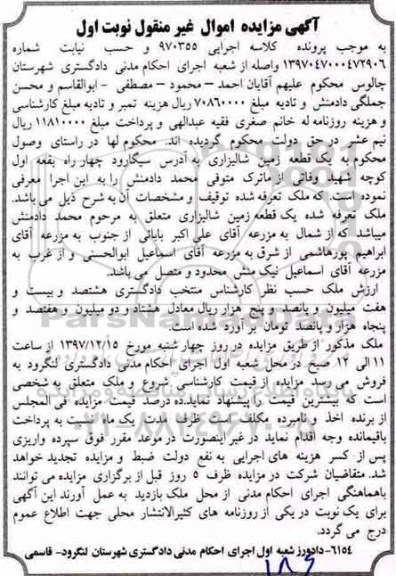 آگهی مزایده اموال غیر منقول نوبت اول
به موجب پرونده کلاسه اجرایی ۹۷۰۳۵۵ و حسب نیابت شماره
۱۳۹۷۰۴۷۰۰۰۴۷۲۹۰۶ واصله از شعبه اجرای احکام مدنی دادگستری شهرستان
چالوس محکوم علیهم آقایان احمد – محمود – مصطفی - ابوالقاسم و محسن
جملگی دادمنش و تادیه مبلغ ۷۰۸۶۰۰۰۰ ریال هزینه تمبر و تادیه مبلغ کارشناسی
و هزینه روزنامه له خانم صغری فقیه عبدالهی و پرداخت مبلغ ۱۱۸۱۰۰۰۰ ریال
نیم عشر در حق دولت محکوم گردیده اند. محکوم لها در راستای وصول
محکوم به یک قطعه زمین شالیزاری به آدرس سیگارود چهار راه بقعه اول
کوچه شهید وفائی از ماترک متوفی محمد دادمنش را به این اجرا معرفی
نموده است که ملک تعرفه شده توقیف و مشخصات آن به شرح ذیل می باشد.
ملک تعرفه شده یک قطعه زمین شالیزاری متعلق به مرحوم محمد دادمنش
میباشد که از شمال به مزرعه آقای علی اکبر بابائی از جنوب به مزرعه آقای
ابراهیم پورهاشمی از شرق به مزرعه آقای اسماعیل ابوالحسنی و از غرب به
مزرعه آقای اسماعیل نیک منش محدود و متصل می باشد.
ارزش ملک حسب نظر کارشناس منتخب دادگستری هشتصد و بیست و
هفت میلیون و پانصد و پنج هزار ریال معادل هشتاد و دو میلیون و هفتصد و
پنجاه هزار و پانصد تومان بر آورد شده است.
ملک مذکور از طریق مزایده در روز چهار شنبه مورخ ۱۳۹۷/۱۲/۱۵ از ساعت
۱۱ الی ۱۲ صبح در محل شعبه اول اجرای احکام مدنی دادگستری لنگرود به
فروش می رسد مزایده از قیمت کارشناسی شروع و ملک متعلق به شخصی
است که بیشترین قیمت را پیشنهاد نماید.ده درصد قیمت مزایده فی المجلس
از برنده اخذ و نامبرده مکلف است ظرف مدت یک ماه نسبت به پرداخت
باقیمانده وجه اقدام نماید در غیر اینصورت در موعد مقرر فوق سپرده واریزی
پس از کسر هزینه های اجرایی به نفع دولت ضبط و مزایده تجدید خواهد
شد. متقاضیان شرکت در مزایده ظرف ۵ روز قبل از برگزاری مزایده می توانند
باهماهنگی اجرای احکام مدنی از محل ملک بازدید به عمل آورند این آگهی
برای یک نوبت در یکی از روزنامه های کثیرالانتشار محلی جهت اطلاع عموم
درج می گردد.
۶۱۵۴- دادورز شعبه اول اجرای احکام مدنی دادگستری شهرستان لنگرود- قاسمی